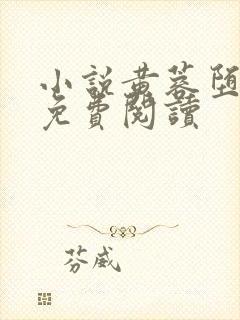 小說黄蓉堕
免費閱讀
芬威